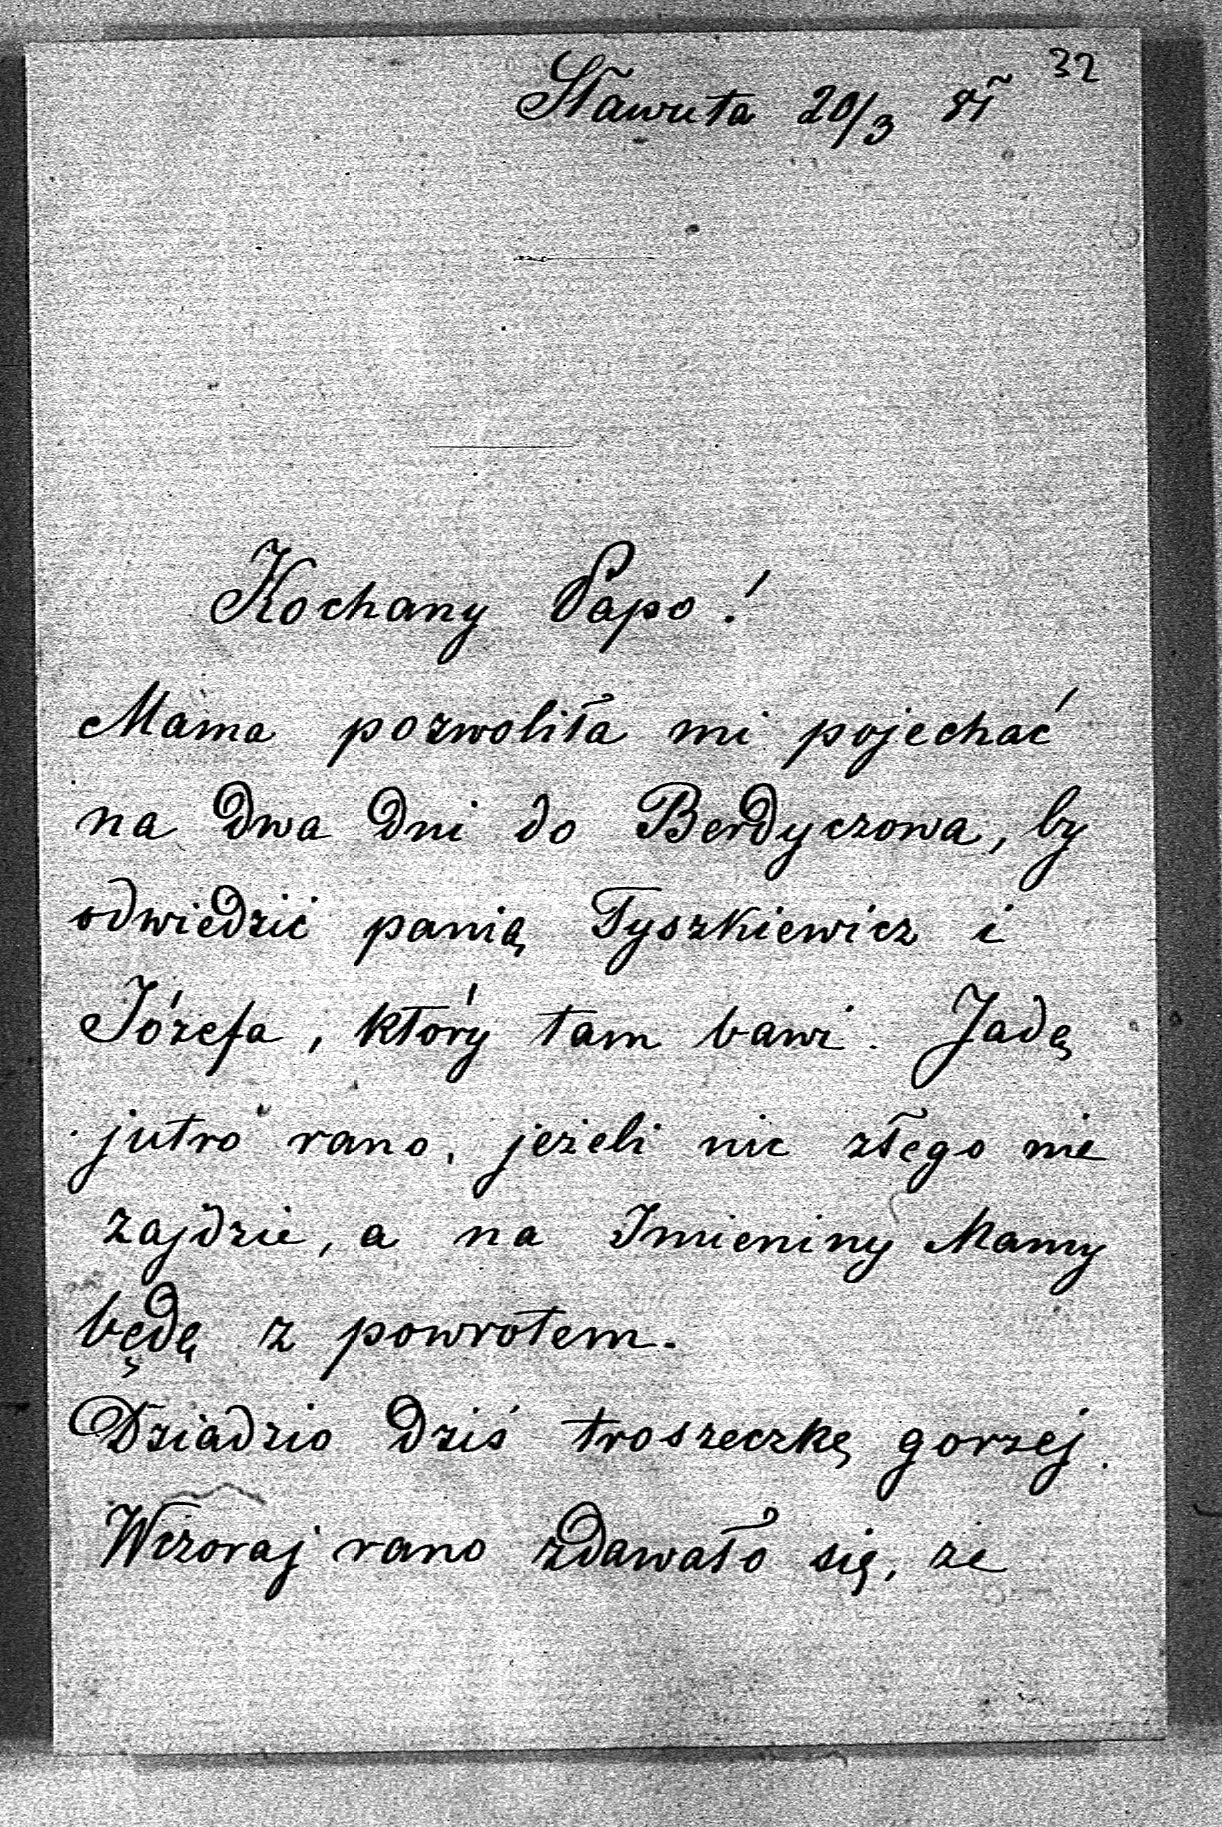 32
Sławuta 20/3
Kochany Papo!
Mama pozwoliła mi pojechać
na dwa dni do Berdyczowa, by
odwiedzić panią Tyszkiewicz i
Józefa, który tam bawi. Jadę
jutro rano, jeżeli nic złego nie
zajdzie, a na Imieniny Mamy
będę z powrotem.
Dziadzio dziś troszeczkę gorzej.
Wczoraj rano zdawało się, że